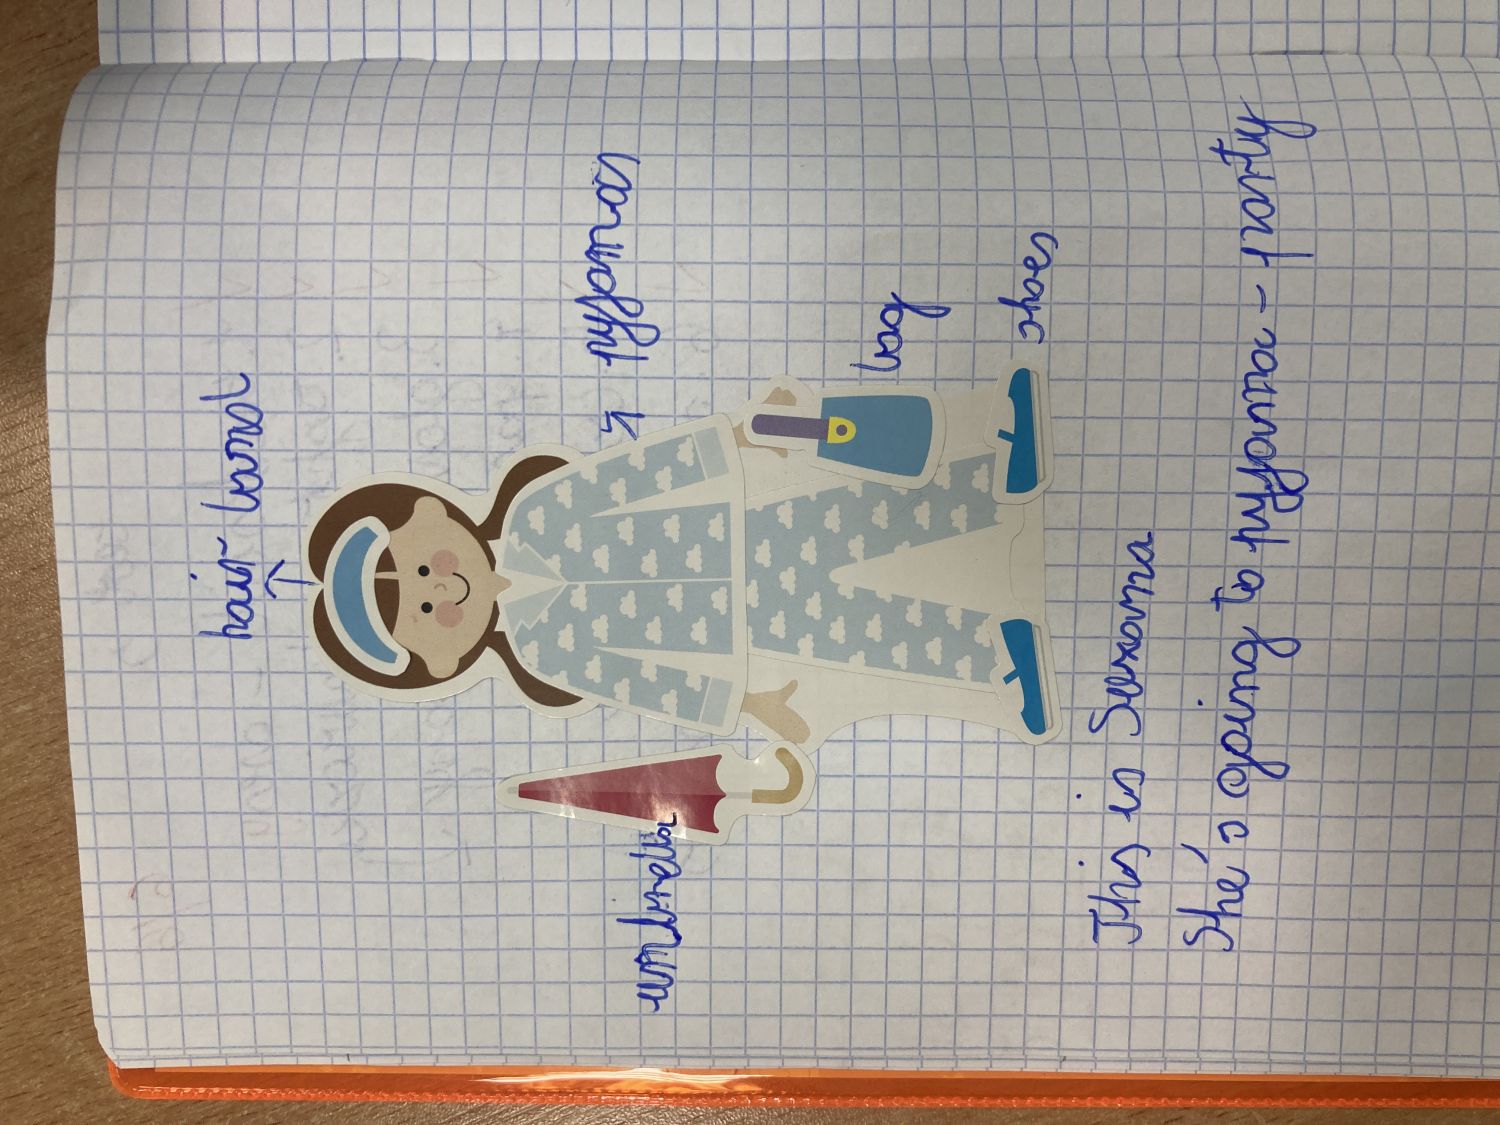 hair-band
pyjamas
umbrella
bag
shoes
This is
She's going to pyjama - party